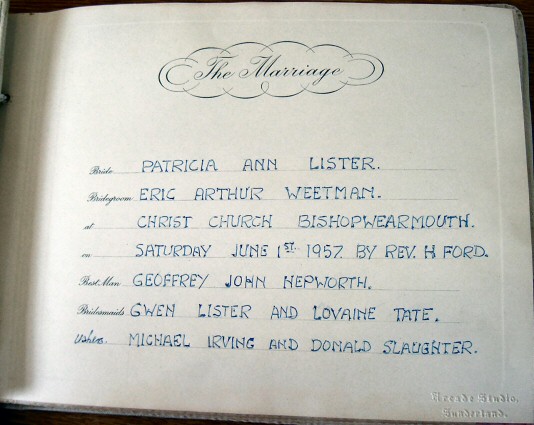 The Marriage
Bride PATRICIA ANN LISTER.
Bridegroom ERIC ARTHUR WEETMAN.
at CHRIST CHURCH BISHOPWEARMOUTH.
on SATURDAY JUNE 1ST. 1957. BY REV. H FORD.
Best Man GEOFFREY JOHN HEPWORTH.
Bridesmaids GWEN LISTER AND LOVAINE TATE.
Ushers. MICHAEL IRVING AND DONALD SLAUGHTER.
Arcade Studio,
Sunderland.